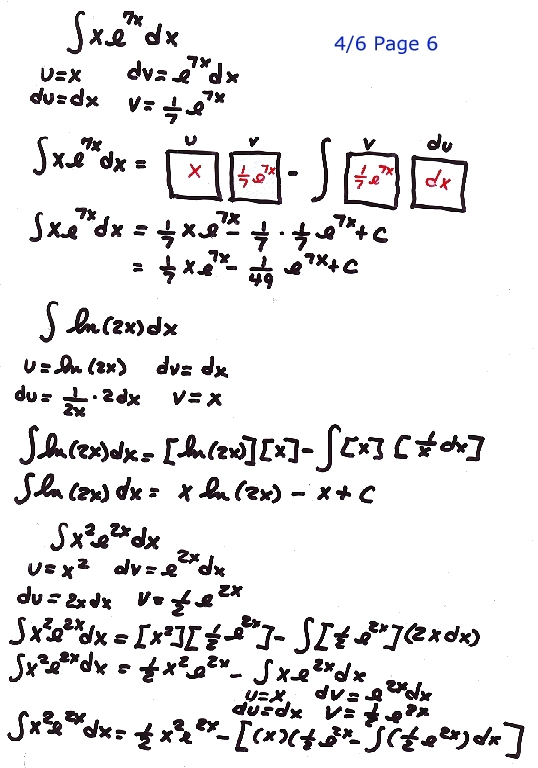 ∫xe^{7x}dx
4/6 Page 6
u=x dv=e^{7x}dx
du=dx v=1/7 e^{7x}
u v v du
∫xe^{7x}dx = x 1/7 e^{7x} - ∫ 1/7 e^{7x} dx
∫xe^{7x}dx = 1/7 xe^{7x} - 1/7 · 1/7 e^{7x}+c
= 1/7 xe^{7x} - 1/49 e^{7x}+c
∫ ln(2x)dx
u=ln(2x) dv=dx
du= 1/2x · 2dx v=x
∫ln(2x)dx=[ln(2x)][x]-∫[x][1/x dx]
∫ln(2x)dx= x ln(2x) - x+c
∫x²e^{2x}dx
u=x² dv=e^{2x}dx
du=2xdx v=1/2 e^{2x}
∫x²e^{2x}dx=[x²][1/2 e^{2x}]-∫[1/2 e^{2x}](2xdx)
∫x²e^{2x}dx=1/2 x²e^{2x}-∫xe^{2x}dx
u=x dv=e^{2x}dx
du=dx v=1/2 e^{2x}
∫x²e^{2x}dx=1/2 x²e^{2x}-[(x)(1/2 e^{2x}-∫(1/2 e^{2x})dx]